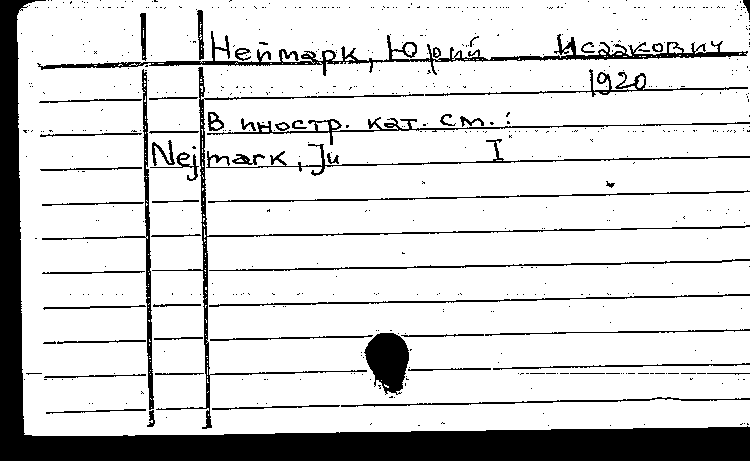 Неймарк, Юрий Исаакович
1920
В иностр. кат. см.:
Nejmark, Ju I